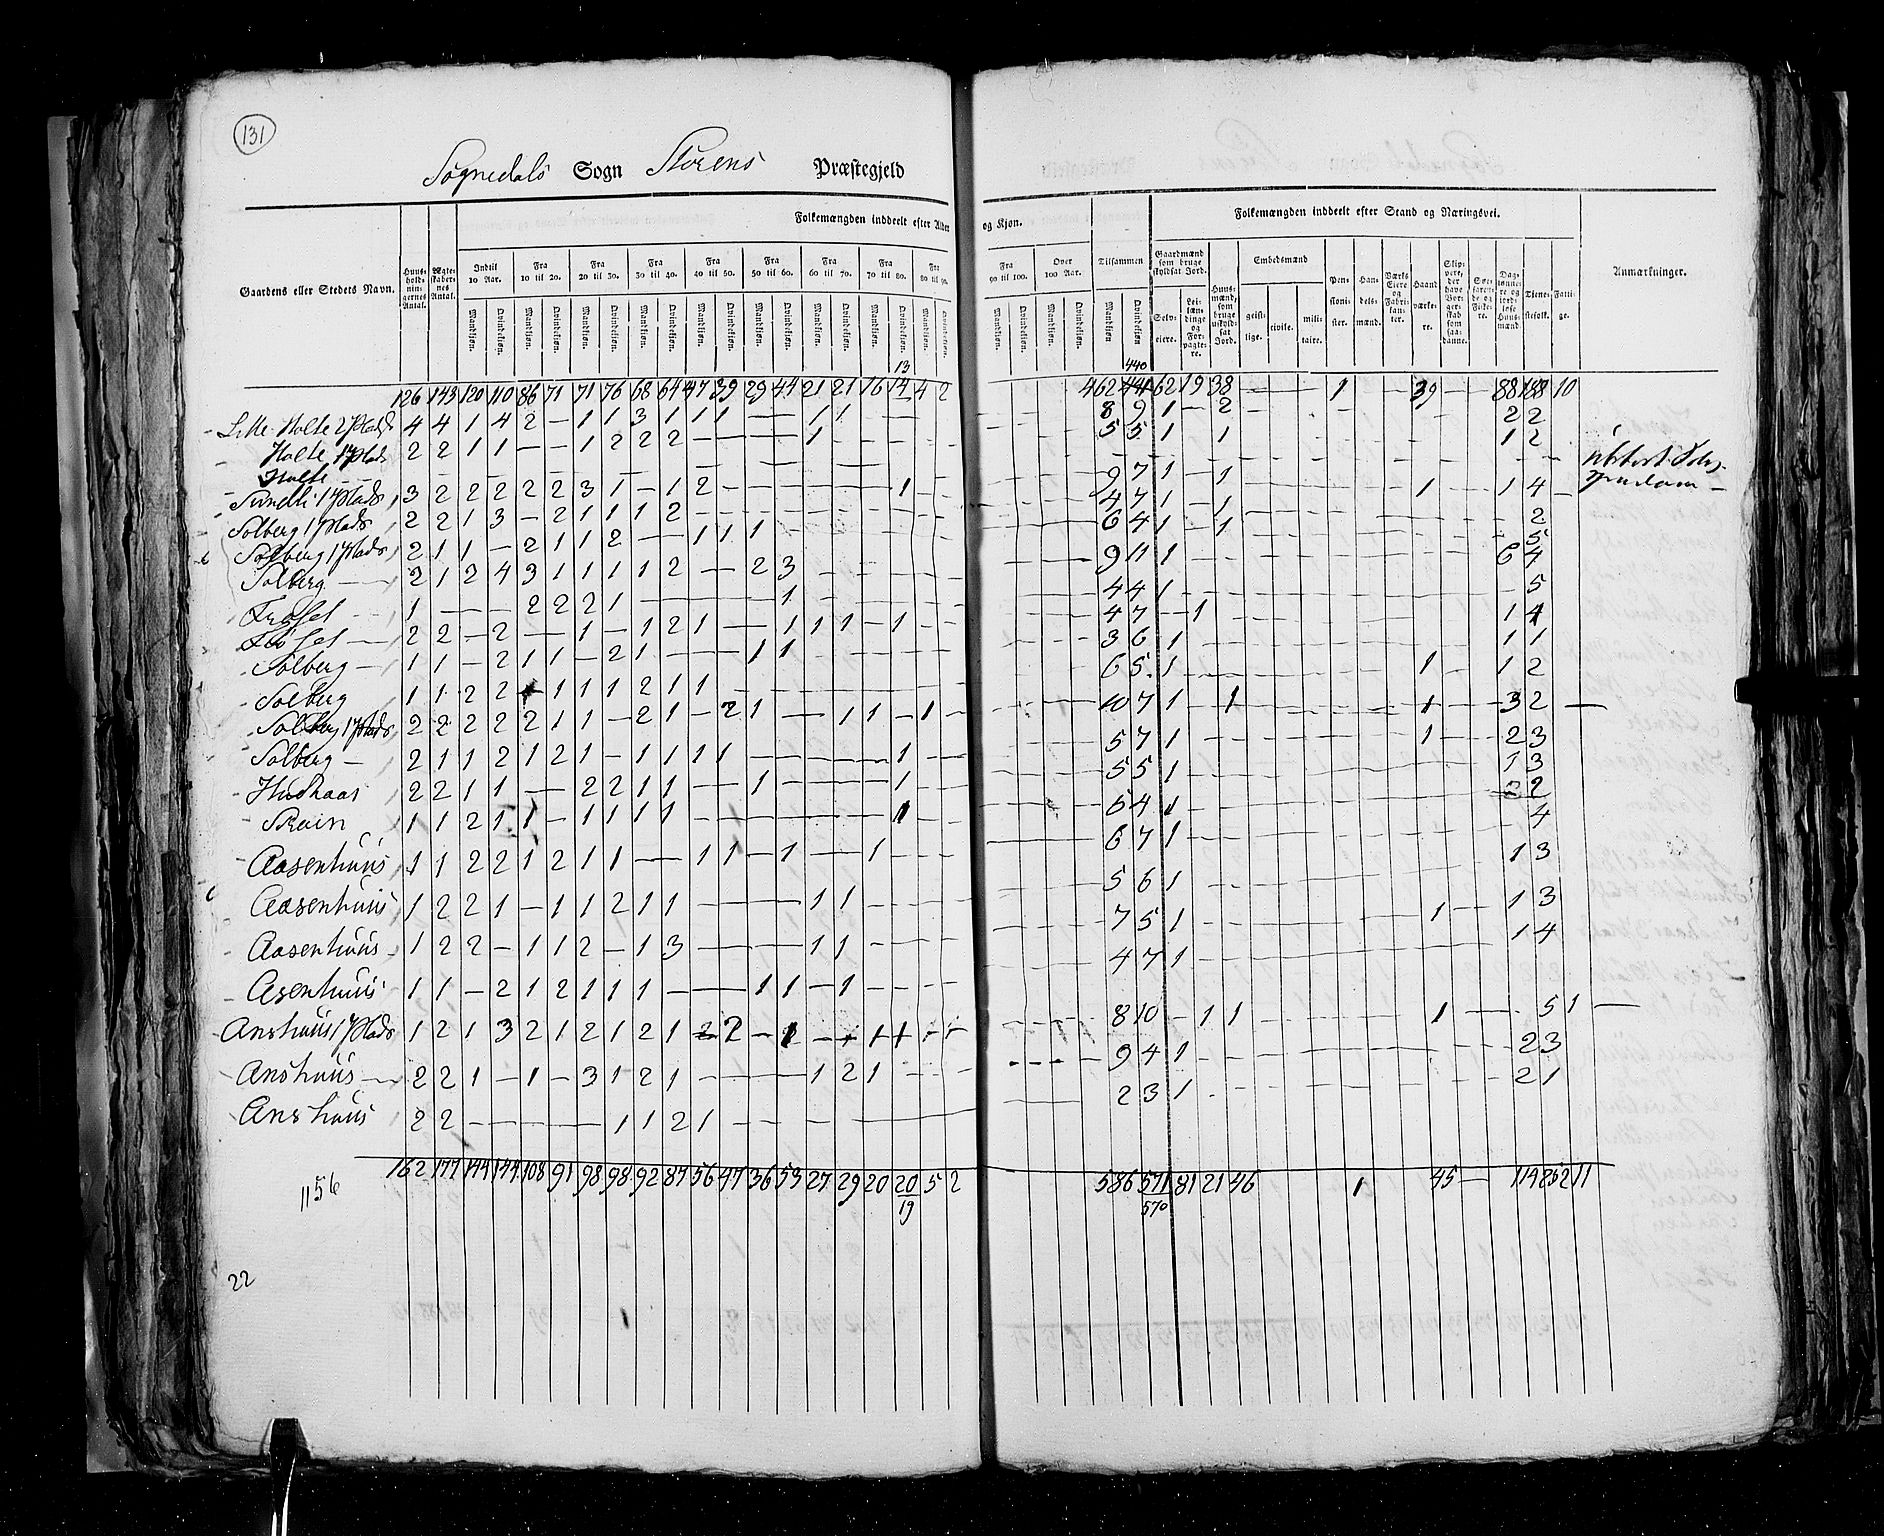 131
Sognedals Sogn Störens Præstegjeld
Gaardens eller Stedets Navn.
Huus-holdningernes Antal.
Ægteskabernes Antal.
Folkemængden inddeelt efter Alder og Kjøn.
Indtil 10 Aar.
Fra 10 til 20.
Fra 20 til 30.
Fra 30 til 40.
Fra 40 til 50.
Fra 50 til 60.
Fra 60 til 70.
Fra 70 til 80.
Fra 80 til 90.
Fra 90 til 100.
Over 100 Aar.
Tilsammen
Mandkjøn. Qvindekjøn.
Folkemængden inddeelt efter Stand og Næringsvei.
Gaardmænd som bruge skyldsat Jord.
Selveiere.
Leilændinge og Forpagtere.
Huusmænd, som bruge uskyldsat Jord.
Embedsmænd
geistlige. civile. militaire.
Pensionister.
Handelsmænd.
Værks Eiere og Fabrikanter.
Haandværkere.
Skippere, der have Borgerskab som saadanne.
Søefarende og Fiskere.
Daglønnere og jordløse Huusmænd.
Tjenestefolk.
Fattige.
Anmærkninger.
13 440
126 143 120 110 86 71 71 76 68 64 47 39 29 44 21 21 16 14 4 2 462 441 62 19 38 — — 1 39 — 88 188 10
Lille Holte 2 Plads 4 4 1 4 2 — 1 1 3 1 1 1 — — 1 1 8 9 1 — 2 2 2
Holte 1 Plads 2 2 1 1 — — 1 2 2 2 — — — — 1 5 5 1 1 1 2
Holte
1 Plads 3 2 2 2 2 2 3 1 — 1 2 1 9 7 1 — 1 1 1 4
Solberg 1 Plads 2 2 1 3 — 2 1 1 1 2 4 7 1 — 1 2
Solberg 1 Plads 2 1 1 — 2 1 1 2 — — 1 1 1 6 4 1 — 1 5
Solberg 2 1 2 4 3 1 1 1 1 2 — — 2 3 9 11 1 6 4
1 — — — 2 2 2 1 — — — — — 1 4 4 1 5
2 2 — 2 — — 1 — 1 2 1 — — 1 1 1 — 1 4 7 — 1 1 4
Solberg 1 1 — 2 1 1 — 2 1 — — — 1 1 3 6 1 1 1
Solberg 1 1 2 2 1 1 1 2 1 1 6 5 1 1 1 2
Solberg 1 Plads 2 2 2 2 2 1 1 — 2 1 — 2 1 — — 1 1 — 1 — 10 7 1 — 1 1 3 2
Solberg 2 1 1 2 1 2 1 — 1 1 1 1 — — — — — 1 5 7 1 1 2 3
Hudhaas 2 2 1 1 — — 2 2 1 1 — — 1 — — — — 1 5 5 1 1 3
1 1 2 1 1 — 1 1 1 1 1 4 1 2
Aasenhuus 1 1 2 2 1 2 1 1 — — 1 1 — 1 — — 1 6 7 1 4
Aasenhuus 1 2 2 1 — 1 1 2 1 1 — — — — 1 1 5 6 1 1 3
Aasenhuus 1 2 2 — 1 1 2 — 1 3 — — — — 1 1 7 5 1 1 1 3
Asenhuus 1 1 — 2 1 2 1 1 1 — — — 1 1 — 1 4 7 1 1 4
Anshuus 1 Plads 1 2 1 3 2 1 2 1 2 1 2 8 10 — 1 1 1 5 1
Anshuus 2 2 1 — 1 — 3 1 2 1 — — — — 1 2 1 9 4 1 2 3
Anshuus 2 2 — — — — — 1 1 2 1 2 3 1 2 1
162 177 144 144 108 91 98 98 92 87 56 47 36 53 27 29 20 20 5 2 586 571 81 21 46 1 45 — 114 252 11
19 570
1156
22